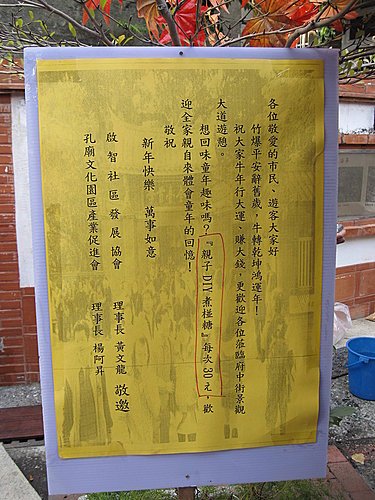 各位敬愛的市民、遊客大家好
竹爆平安辭舊歲，牛轉乾坤鴻運年！
祝大家牛年行大運、賺大錢，更歡迎各位蒞臨府中街景觀
大道遊憩。
想回味童年趣味嗎？『親子DIY煮椪糖』每次30元，歡
迎全家親自來體會童年的回憶！
敬祝
新年快樂 萬事如意
啟智社區發展協會 理事長 黃文龍 敬邀
孔廟文化園區產業促進會 理事長 楊阿昇